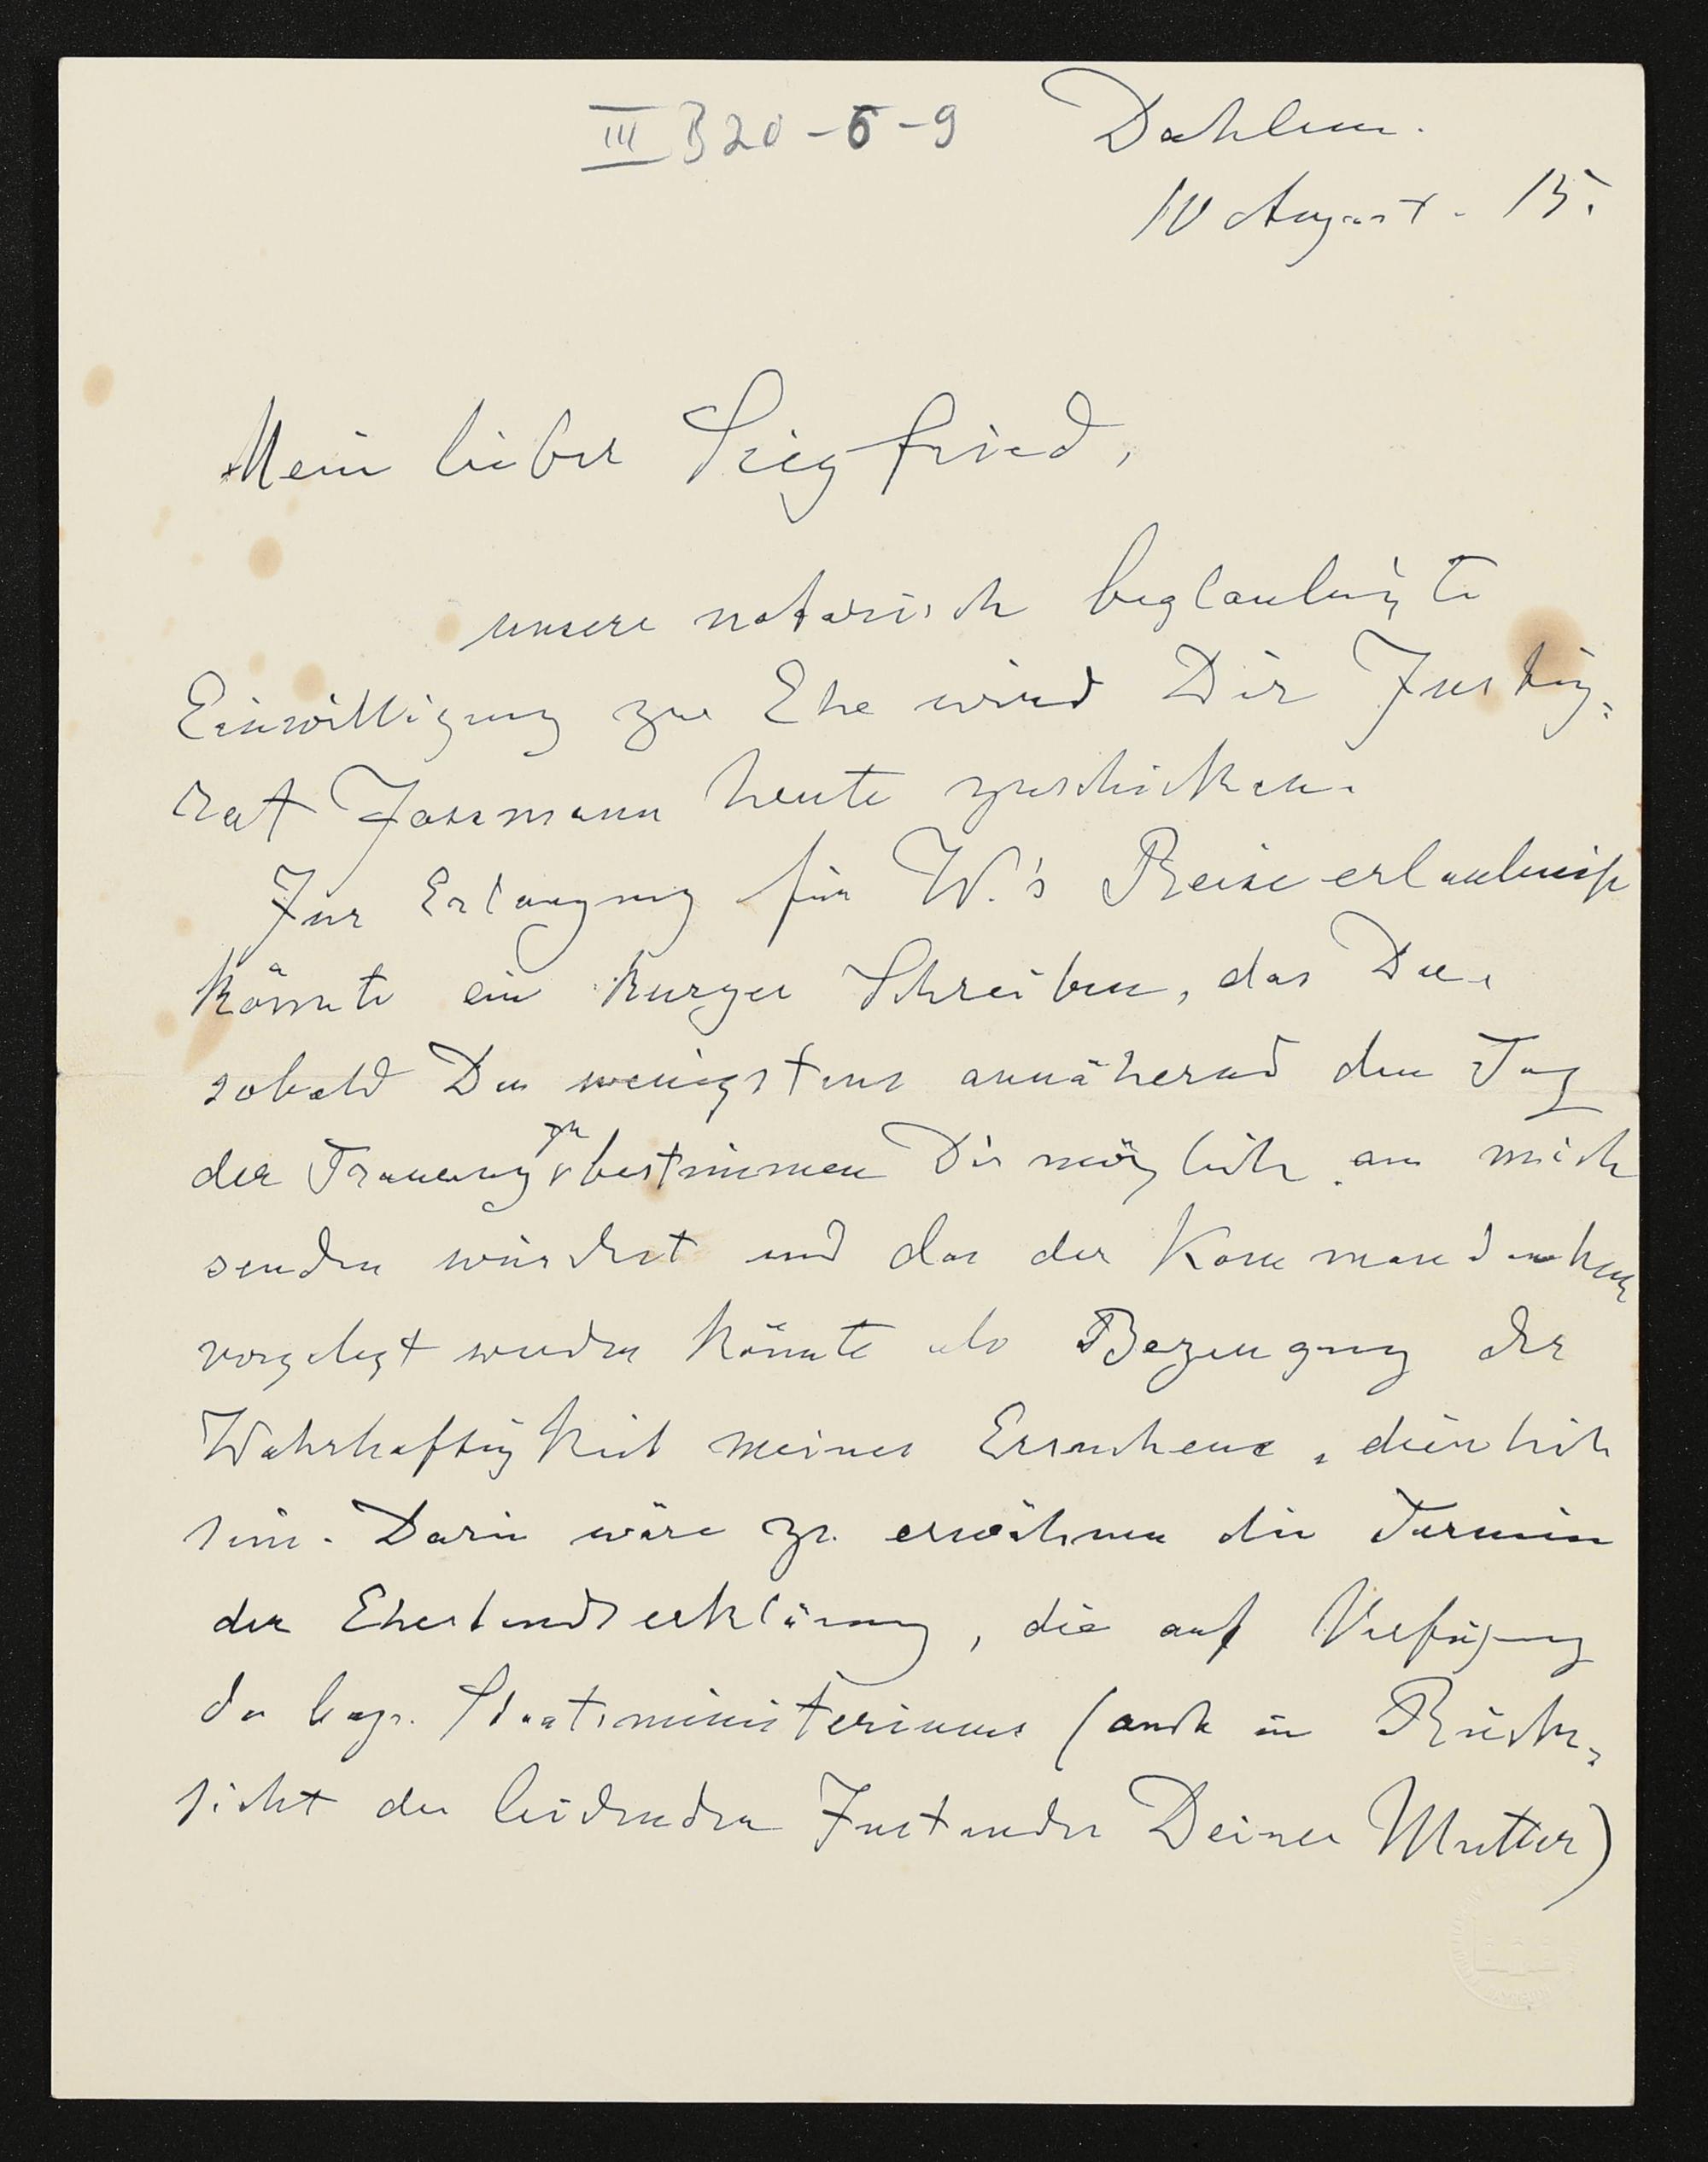 III B 20-6-9 Dahlem.
10 August. 15.
Mein lieber Siegfried,
unsere notarisch beglaubigte
Einwilligung zur Ehe wird Dir Justiz-
rat Jassmann heute zuschicken.
Zur Erlangung für W.'s Reiseerlaubniß
könnte ein kurzes Schreiben, das Du,
sobald Du wenigstens annähernd den Tag
der Trauung zu bestimmen Dir möglich, an mich
senden würdest und das der Kommandantur
vorgelegt werden könnte als Bezeugung der
Wahrhaftigkeit meines Ersuchens, dienlich
sein. Darin wäre zu erwähnen die Termin
der Ehestandserklärung, die auf Verfügung
des bayr. Staatsministeriums (auch in Rück-
sicht des leidenden Zustandes Deiner Mutter)